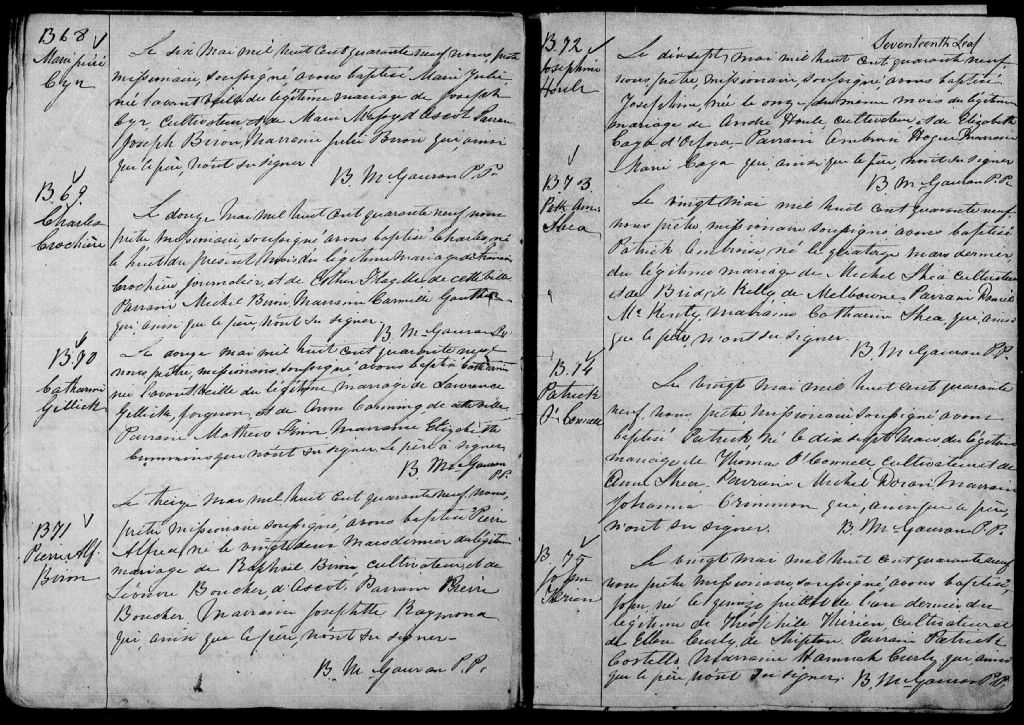 B 68
Marie Julie
Cyr
Le six mai mil huit cent quarante neuf nous, prêtre
missionaire, soussigné avons baptisé Marie Julie
née l'avant veille du légitime mariage de Joseph
Cyr, Cultivateur et de Marie d'Ascot Parrain
Joseph Biron, Marraine Julie Biron qui, ainsi
que le père, n'ont su signer
B. McGauran P.P.
B. 69
Charles
Crochière
Le douze mai mil huit cent quarante neuf nous
prêtre missionaire soussigné avons baptisé Charles, né
le huit du présent mois du légitime mariage de
Crochière journalier, et de Esther de cette ville
Parrain Michel Biron Marraine Carmelle Gauthier
qui ainsi que le père, n'ont su signer.
B. McGauran P.P.
B. 70
Catharine
Gillick
Le douze mai mil huit cent quarante neuf
nous, prêtre, missionaire, soussigné avons baptisé Catharine
née l'avant veille du légitime mariage de Lawrence
Gillick, forgeron, et de Anne Cumming de cette ville
Parrain Mathew Marraine Elizabeth
Cummins qui n'ont su signer. Le père a signé
B. McGauran
P.P.
B 71
Pierre Alf.
Biron
Le treize mai mil huit cent quarante neuf, nous,
prêtre missionaire soussigné, avons baptisé Pierre
Alfred, né le vingt deux mars dernier du légitime
mariage de Raphaël Biron cultivateur, et de
Léonore Boucher d'Ascot. Parrain Pierre
Boucher Marraine Josephtte Raymond
qui, ainsi que le père, n'ont su signer-
B. McGauran P.P.
Seventeenth Leaf
B. 72
Josephine
Houle
Le dixsept mai mil huit cent quarante neuf
nous prêtre, missionaire, soussigné, avons baptisé
Josephine, née le onze du même mois du légitime
mariage de André Houle, cultivateur et de Elizabeth
Caya d'Orford - Parrain Ambroise Marraine
Marie Caya qui, ainsi que le père n'ont su signer
B McGauran P.P.
B. 73
Patk. Am.
Shea
Le vingt mai mil huit cent quarante neuf
nous, prêtre, missionaire soussigné avons baptisé
Patrick Ambroise, né le quatorze mars dernier,
du légitime mariage de Michel Shea Cultivateur
et de Bridget Kelly de Melbourne - Parrain Daniel
Marraine Catharine Shea qui, ainsi
que le père, n'ont su signer.
B. McGauran P.P.
B. 74
Patrick
O'Connell
Le vingt mai mil huit cent quarante
neuf, nous prêtre missionaire soussigné avons
baptisé Patrick né le dix sept mars du légitime
mariage de Thomas O'Connell cultivateur et de
Shea - Parrain Michel Doran Marraine
Johanna Crimmon qui, ainsi que le père,
n'ont su signer.
B. McGauran P.P.
B. 75
John
Thérien
Le vingt mai mil huit cent quarante neuf
nous prêtre missionaire, soussigné, avons baptisé,
John, né le quinze juillet de l'an dernier du
légitime de Théophile Thérien cultivateur et
de Ellen Curly de Shipton Parrain Patrick
Costello Marraine Hannah Curly qui ainsi
que le père, n'ont su signer.
B. McGauran P.P.